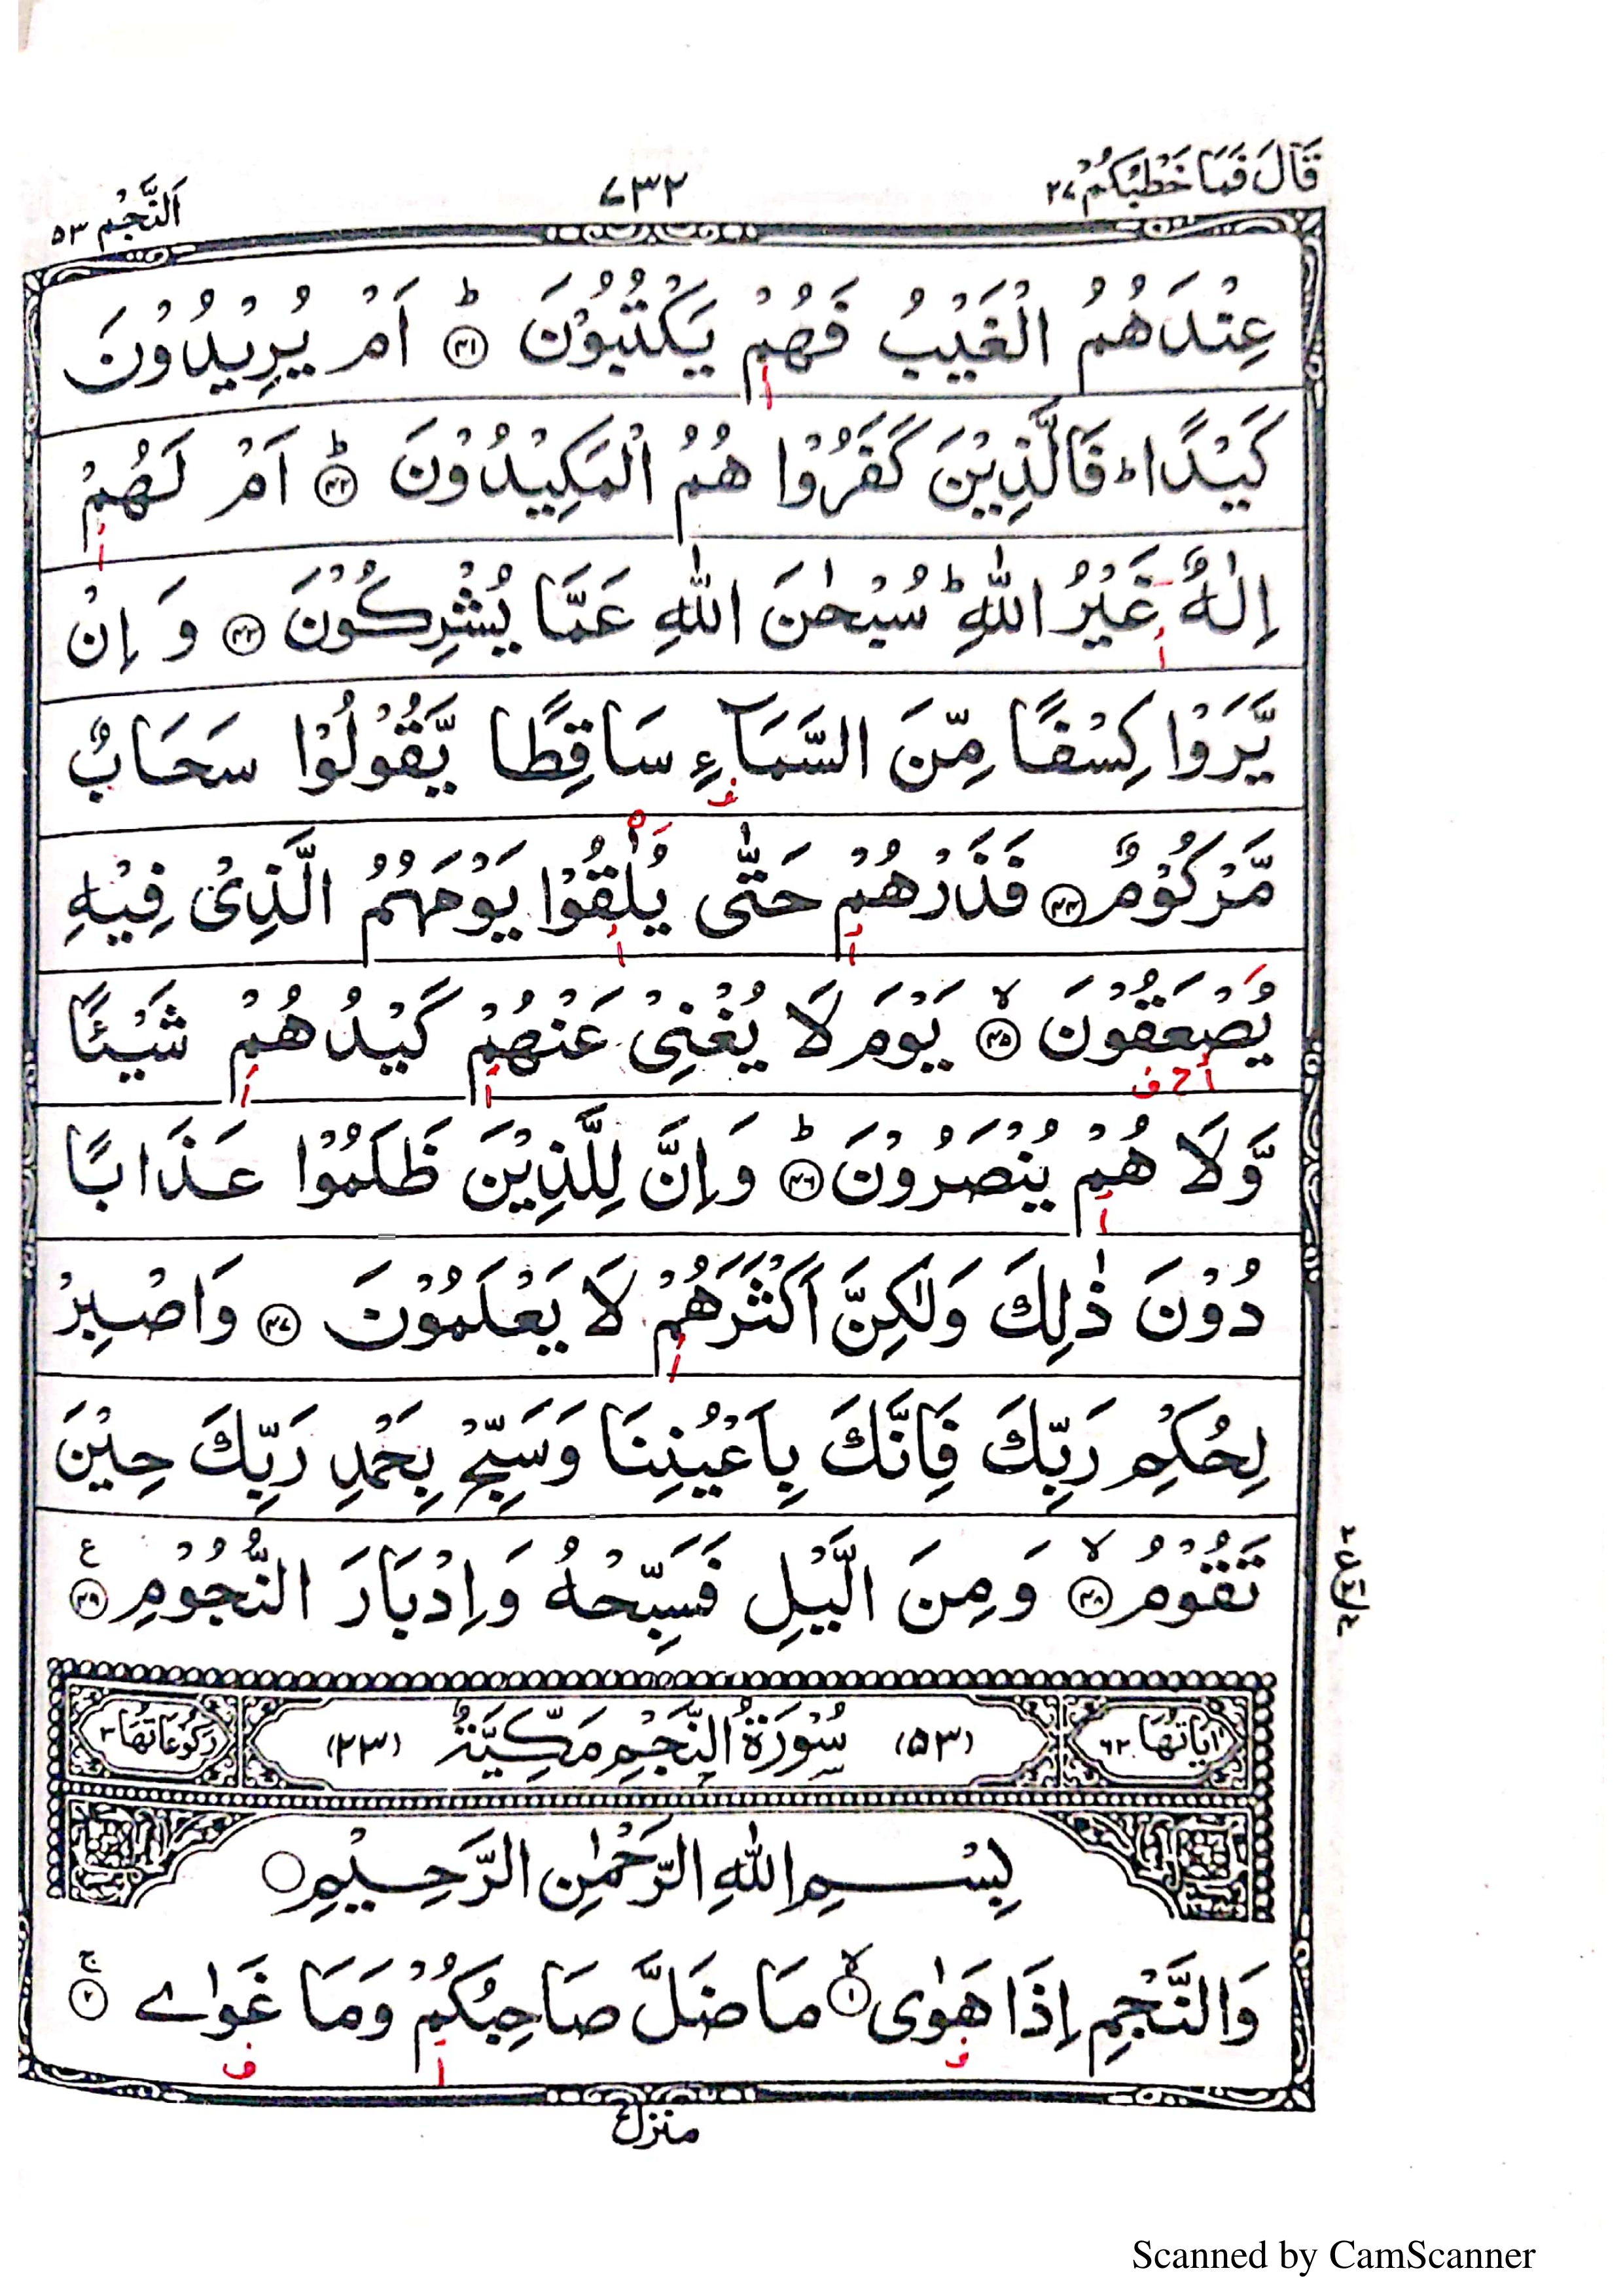 قَالَ فَمَا خَطْبُكُمْ ۲۷
۷۳۲
اَلنَّجْمِ ۵۳
عِنْدَهُمُ الْغَيْبُ فَهُمْ يَكْتُبُوْنَ ؕ ﴿۴۱﴾ اَمْ يُرِيْدُوْنَ
كَيْدًا ؕ فَالَّذِيْنَ كَفَرُوْا هُمُ الْمَكِيْدُوْنَ ؕ ﴿۴۲﴾ اَمْ لَهُمْ
اِلٰهٌ غَيْرُ اللّٰهِ ؕ سُبْحٰنَ اللّٰهِ عَمَّا يُشْرِكُوْنَ ﴿۴۳﴾ وَ اِنْ
يَّرَوْا كِسْفًا مِّنَ السَّمَآءِ سَاقِطًا يَّقُوْلُوْا سَحَابٌ
مَّرْكُوْمٌ ﴿۴۴﴾ فَذَرْهُمْ حَتّٰى يُلٰقُوْا يَوْمَهُمُ الَّذِىْ فِيْهِ
يُصْعَقُوْنَ ۙ ﴿۴۵﴾ يَوْمَ لَا يُغْنِىْ عَنْهُمْ كَيْدُهُمْ شَيْئًا
وَّلَا هُمْ يُنْصَرُوْنَ ؕ ﴿۴۶﴾ وَاِنَّ لِلَّذِيْنَ ظَلَمُوْا عَذَابًا
دُوْنَ ذٰلِكَ وَلٰكِنَّ اَكْثَرَهُمْ لَا يَعْلَمُوْنَ ﴿۴۷﴾ وَاصْبِرْ
لِحُكْمِ رَبِّكَ فَاِنَّكَ بِاَعْيُنِنَا وَسَبِّحْ بِحَمْدِ رَبِّكَ حِيْنَ
تَقُوْمُ ۙ ﴿۴۸﴾ وَمِنَ الَّيْلِ فَسَبِّحْهُ وَاِدْبَارَ النُّجُوْمِ ﴿۴۹﴾ ع
اٰيَاتُهَا ۶۲ (۵۳) سُوْرَةُ النَّجْمِ مَكِّيَّةٌ (۲۳) رُكُوْعَاتُهَا ۳
بِسْمِ اللّٰهِ الرَّحْمٰنِ الرَّحِيْمِ
وَالنَّجْمِ اِذَا هَوٰى ۙ ﴿۱﴾ مَا ضَلَّ صَاحِبُكُمْ وَمَا غَوٰے ۚ ﴿۲﴾
منزل
Scanned by CamScanner